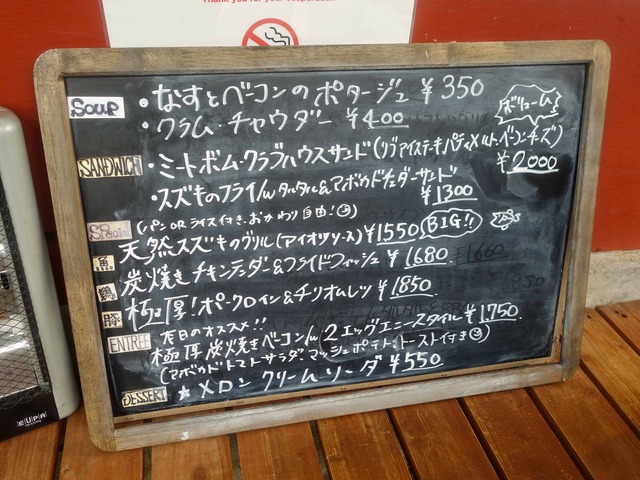 Thank you for your cooperation
Soup
・なすとベーコンのポタージュ ¥350
・クラム・チャウダー ¥400
ボリューム
SANDWICH
・ミートボム・クラブハウスサンド(リブアイステーキ・パティ×メルト・ベーコンチーズ)
¥2,000
・スズキのフライ/w タルタル&アボカドチェダーサンド
¥1300
Special
(パン or ライス付き、おかわり自由!)
魚
天然スズキのグリル(アイオリソース) ¥1550 BIG!!
鶏
炭焼きチキンテンダー&フライドフィッシュ ¥1680
豚
極厚!ポークロイン&チリオムレツ ¥1850
ENTREE
本日のオススメ!!
極厚炭焼きベーコン/w 2エッグエニースタイル ¥1,750
(アボカド・トマトサラダ、マッシュポテト、トースト付き)
DESSERT
★メロンクリームソーダ ¥550
EUPA